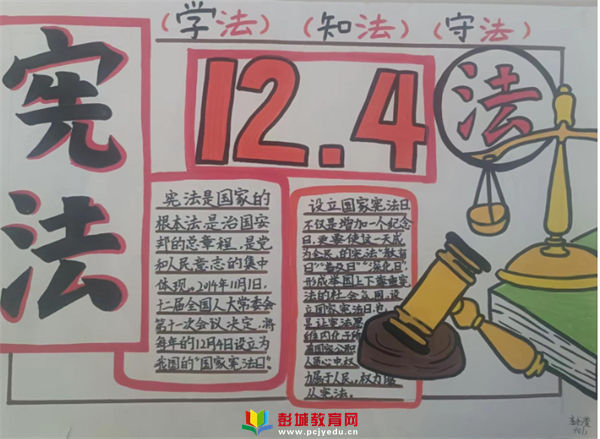 （学法）（知法）（守法）
宪法
12.4
法
宪法是国家的
根本法是治国安
邦的总章程,是党
和人民意志的集中
体现。2014年11月1日,
十一届全国人大常委会
第十一次会议决定,将
每年的12月4日设立为
我国的“国家宪法日”。
设立国家宪法日,
不仅是增加一个纪念
日,更要使这一天成
为全民的宪法“教育
日”“普及日”“深化日”,
形成举国上下尊重宪
法的社会立国,设
立国家宪法日,也
是让宪法思
维内化于所
有国家公职
人员心中权
力属于人民,权力服
从宪法。
彭城教育网
www.pcjyedu.cn